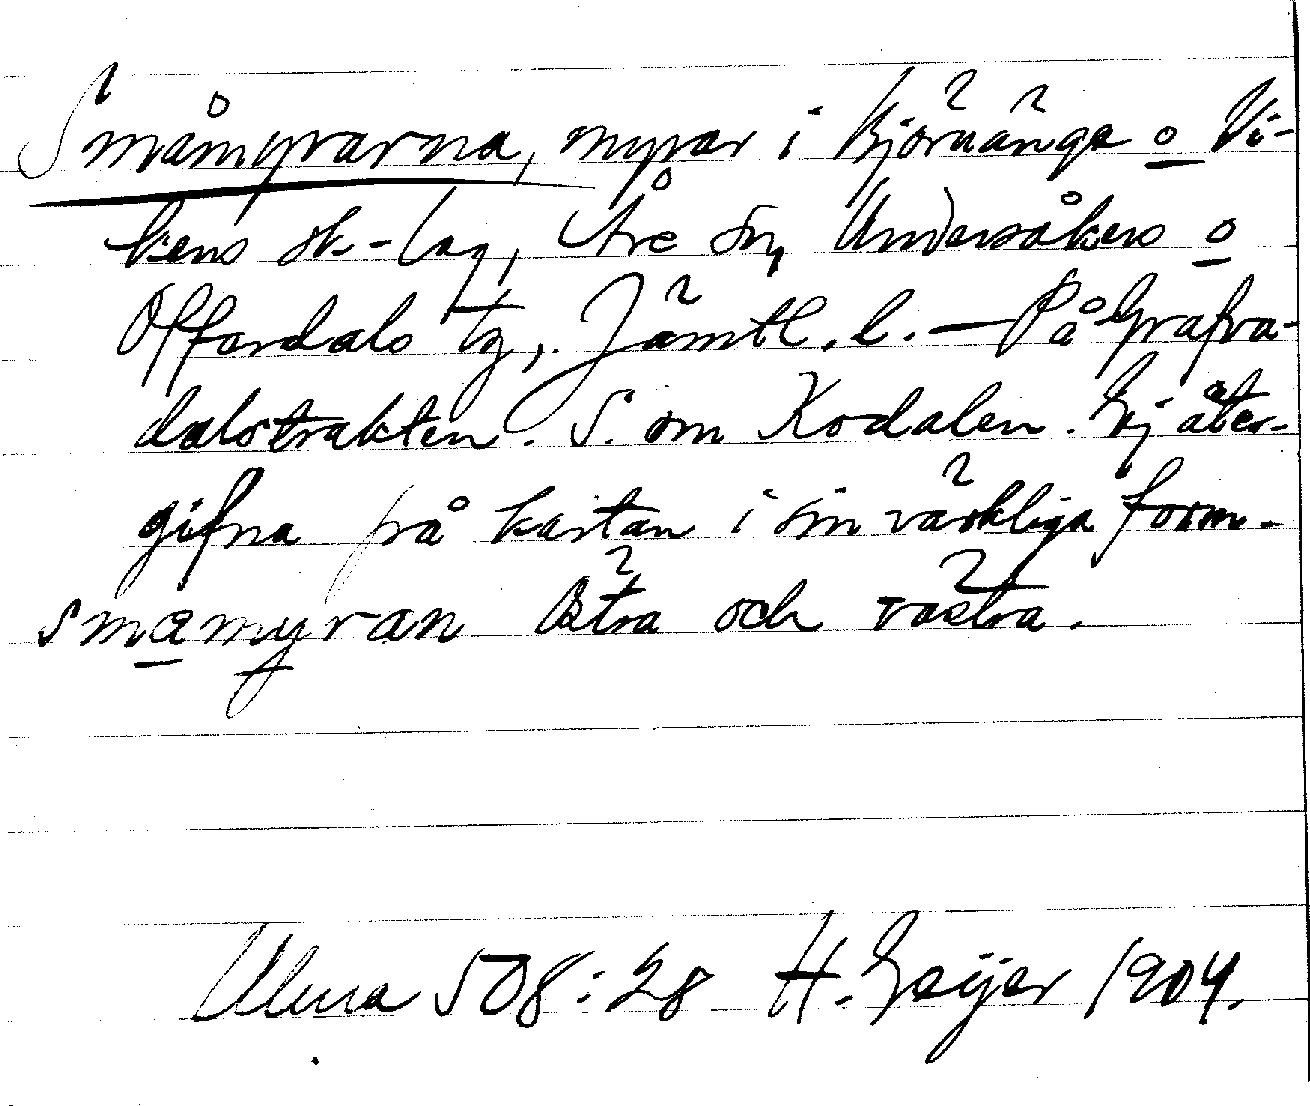 Småmyrarna, myrar i Björnänge o Vi-
kens sk-lag, Åre sn, Undersåkers o
Offerdals tg, Jämtl. l. — På Grafva-
dalstrakten. S. om Kodalen. Ej åter-
gifna på kartan i sin värkliga form.
smamyran östra och västra.
Ulma 508:28 H. Geijer 1904.